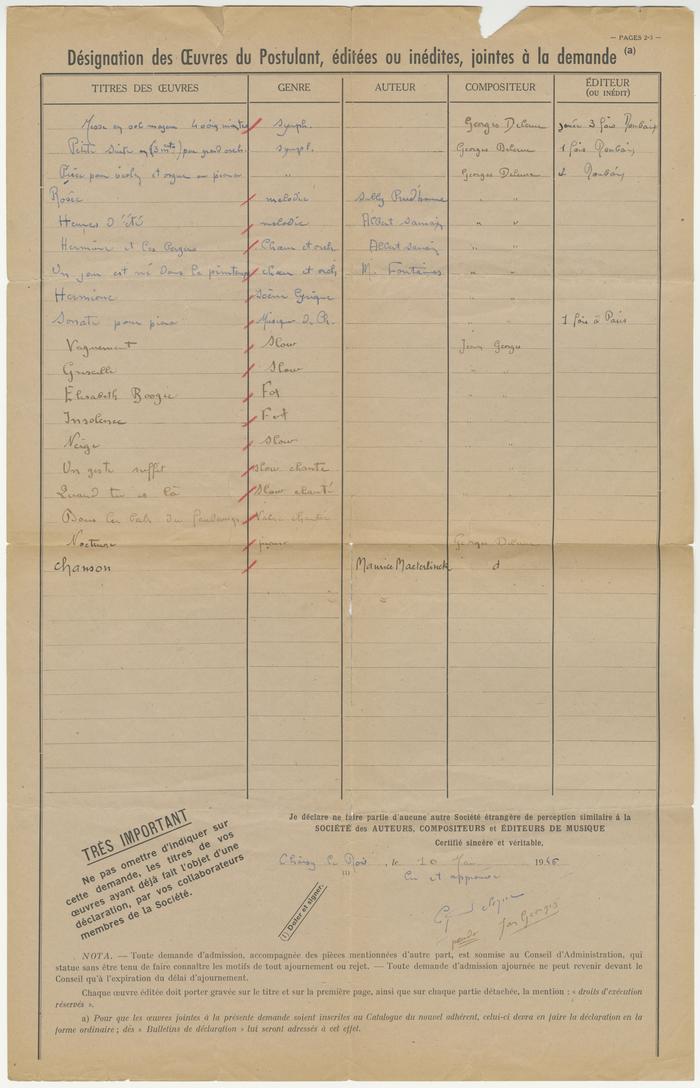 — PAGES 2-3 —
Désignation des Œuvres du Postulant, éditées ou inédites, jointes à la demande (a)
TITRES DES ŒUVRES GENRE AUTEUR COMPOSITEUR ÉDITEUR
(OU INÉDIT)
Messe en sol majeur symph. Georges Delerue jouée 3 fois Roubaix
Petite Suite en (3 mts) pour grand orch. sympl. Georges Delerue 1 fois Roubaix
Pièce pour violon et orgue ou piano " Georges Delerue Roubaix
Rosée mélodie Sully Prudhomme " "
Heures d'été mélodie Albert Samain " "
Hermione et les Bergers Chœur et orch Albert Samain " "
Un jour est né dans le printemps chœur et orch M. Fontaines " "
Hermione Scène lyrique " "
Sonate pour piano Musique de Ch. " " 1 fois à Paris
Vaguement Slow Jean Georges
Griseille Slow " "
Elisabeth Boogie Fox "
Insolence Fox
Neige Slow " "
Un geste suffit Slow chanté "
Quand tu es là Slow chanté "
Dans les bals du faubourg Valse chantée
Nocturne piano Georges Delerue
Chanson Maurice Maeterlinck d
TRÈS IMPORTANT
Ne pas omettre d'indiquer sur
cette demande, les titres de vos
œuvres ayant déjà fait l'objet d'une
déclaration, par vos collaborateurs
membres de la Société.
Je déclare ne faire partie d'aucune autre Société étrangère de perception similaire à la
SOCIÉTÉ des AUTEURS, COMPOSITEURS et ÉDITEURS DE MUSIQUE
Certifié sincère et véritable,
Choisy le Roi, le 10 1946
(1)
Lu et approuvé
(1) Dater et signer.
pseudo Jean Georges
NOTA. — Toute demande d'admission, accompagnée des pièces mentionnées d'autre part, est soumise au Conseil d'Administration, qui
statue sans être tenu de faire connaître les motifs de tout ajournement ou rejet. — Toute demande d'admission ajournée ne peut revenir devant le
Conseil qu'à l'expiration du délai d'ajournement.
Chaque œuvre éditée doit porter gravée sur le titre et sur la première page, ainsi que sur chaque partie détachée, la mention : « droits d'exécution
réservés ».
a) Pour que les œuvres jointes à la présente demande soient inscrites au Catalogue du nouvel adhérent, celui-ci devra en faire la déclaration en la
forme ordinaire ; dés « Bulletins de déclaration » lui seront adressés à cet effet.